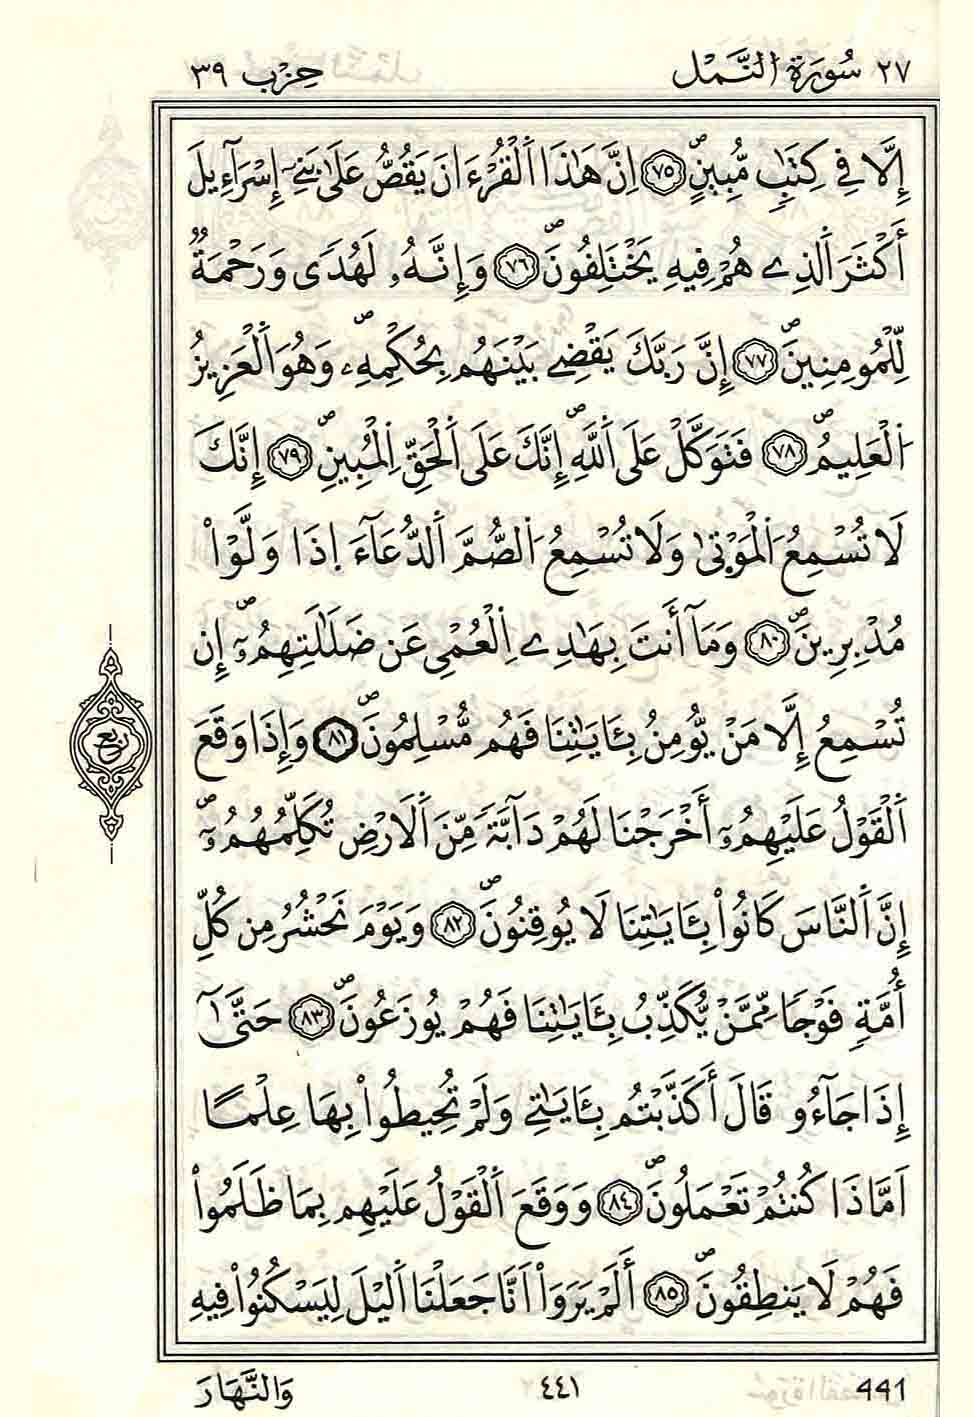 ٢٧ سُورَةُ النَّمْلِ حِزْب ٣٩
إِلَّا فِے كِتَٰبٖ مُّبِينٍۖ ٧٥ اِنَّ هَٰذَا اَ۬لْقُرْءَانَ يَقُصُّ عَلَىٰ بَنِےٓ إِسْرَآءِيلَ
أَكْثَرَ اَ۬لذِے هُمْ فِيهِ يَخْتَلِفُونَۖ ٧٦ وَإِنَّهُۥ لَهُدىٗ وَرَحْمَةٞ
لِّلْمُومِنِينَۖ ٧٧ إِنَّ رَبَّكَ يَقْضِے بَيْنَهُم بِحُكْمِهِۦۖ وَهُوَ اَ۬لْعَزِيزُ
اُ۬لْعَلِيمُۖ ٧٨ فَتَوَكَّلْ عَلَى اَ۬للَّهِۖ إِنَّكَ عَلَى اَ۬لْحَقِّ اِ۬لْمُبِينِۖ ٧٩ إِنَّكَ
لَا تُسْمِعُ اُ۬لْمَوْت۪ىٰ وَلَا تُسْمِعُ اُ۬لصُّمَّ اَ۬لدُّعَآءَ اِ۪ذَا وَلَّوْاْ
مُدْبِرِينَۖ ٨٠ وَمَآ أَنتَ بِهَٰدِے اِ۬لْعُمْيِ عَن ضَلَٰلَتِهِمُۥٓۖ إِن
تُسْمِعُ إِلَّا مَنْ يُّومِنُ بِـَٔايَٰتِنَا فَهُم مُّسْلِمُونَۖ ٨١ وَإِذَا وَقَعَ
اَ۬لْقَوْلُ عَلَيْهِمُۥٓ أَخْرَجْنَا لَهُمْ دَآبَّةٗ مِّنَ اَ۬لَارْضِ تُكَلِّمُهُمُۥٓۖ
إِنَّ اَ۬لنَّاسَ كَانُواْ بِـَٔايَٰتِنَا لَا يُوقِنُونَۖ ٨٢ وَيَوْمَ نَحْشُرُ مِن كُلِّ
أُمَّةٖ فَوْجاٗ مِّمَّنْ يُّكَذِّبُ بِـَٔايَٰتِنَا فَهُمْ يُوزَعُونَۖ ٨٣ حَتَّىٰٓ
إِذَا جَآءُو قَالَ أَكَذَّبْتُم بِـَٔايَٰتِے وَلَمْ تُحِيطُواْ بِهَا عِلْماً
اَمَّاذَا كُنتُمْ تَعْمَلُونَۖ ٨٤ وَوَقَعَ اَ۬لْقَوْلُ عَلَيْهِم بِمَا ظَلَمُواْ
فَهُمْ لَا يَنطِقُونَۖ ٨٥ أَلَمْ يَرَوَاْ اَنَّا جَعَلْنَا اَ۬ليْلَ لِيَسْكُنُواْ فِيهِ
441 ٤٤١ وَالنَّهَارَ
ربع